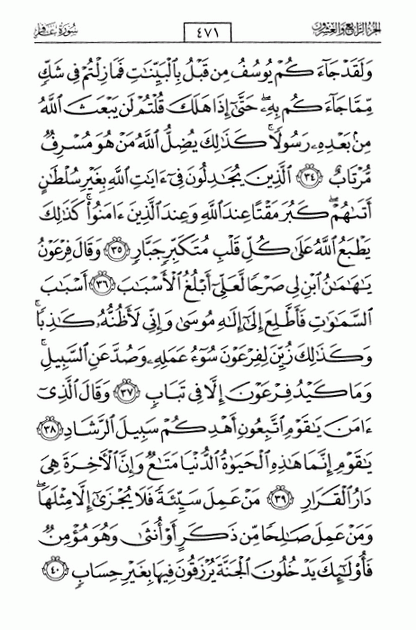 الجزء الرابع والعشرون ٤٧١ سورة غافر
وَلَقَدْ جَآءَكُمْ يُوسُفُ مِن قَبْلُ بِٱلْبَيِّنَٰتِ فَمَا زِلْتُمْ فِى شَكٍّ
مِّمَّا جَآءَكُم بِهِۦ حَتَّىٰٓ إِذَا هَلَكَ قُلْتُمْ لَن يَبْعَثَ ٱللَّهُ
مِنۢ بَعْدِهِۦ رَسُولًا ۚ كَذَٰلِكَ يُضِلُّ ٱللَّهُ مَنْ هُوَ مُسْرِفٌ
مُّرْتَابٌ ٣٤ ٱلَّذِينَ يُجَٰدِلُونَ فِىٓ ءَايَٰتِ ٱللَّهِ بِغَيْرِ سُلْطَٰنٍ
أَتَىٰهُمْ ۖ كَبُرَ مَقْتًا عِندَ ٱللَّهِ وَعِندَ ٱلَّذِينَ ءَامَنُوا۟ ۚ كَذَٰلِكَ
يَطْبَعُ ٱللَّهُ عَلَىٰ كُلِّ قَلْبِ مُتَكَبِّرٍ جَبَّارٍ ٣٥ وَقَالَ فِرْعَوْنُ
يَٰهَٰمَٰنُ ٱبْنِ لِى صَرْحًا لَّعَلِّىٓ أَبْلُغُ ٱلْأَسْبَٰبَ ٣٦ أَسْبَٰبَ
ٱلسَّمَٰوَٰتِ فَأَطَّلِعَ إِلَىٰٓ إِلَٰهِ مُوسَىٰ وَإِنِّى لَأَظُنُّهُۥ كَٰذِبًا ۚ
وَكَذَٰلِكَ زُيِّنَ لِفِرْعَوْنَ سُوٓءُ عَمَلِهِۦ وَصُدَّ عَنِ ٱلسَّبِيلِ ۚ
وَمَا كَيْدُ فِرْعَوْنَ إِلَّا فِى تَبَابٍ ٣٧ وَقَالَ ٱلَّذِىٓ
ءَامَنَ يَٰقَوْمِ ٱتَّبِعُونِ أَهْدِكُمْ سَبِيلَ ٱلرَّشَادِ ٣٨
يَٰقَوْمِ إِنَّمَا هَٰذِهِ ٱلْحَيَوٰةُ ٱلدُّنْيَا مَتَٰعٌ وَإِنَّ ٱلْءَاخِرَةَ هِىَ
دَارُ ٱلْقَرَارِ ٣٩ مَنْ عَمِلَ سَيِّئَةً فَلَا يُجْزَىٰٓ إِلَّا مِثْلَهَا ۖ
وَمَنْ عَمِلَ صَٰلِحًا مِّن ذَكَرٍ أَوْ أُنثَىٰ وَهُوَ مُؤْمِنٌ
فَأُو۟لَٰٓئِكَ يَدْخُلُونَ ٱلْجَنَّةَ يُرْزَقُونَ فِيهَا بِغَيْرِ حِسَابٍ ٤٠